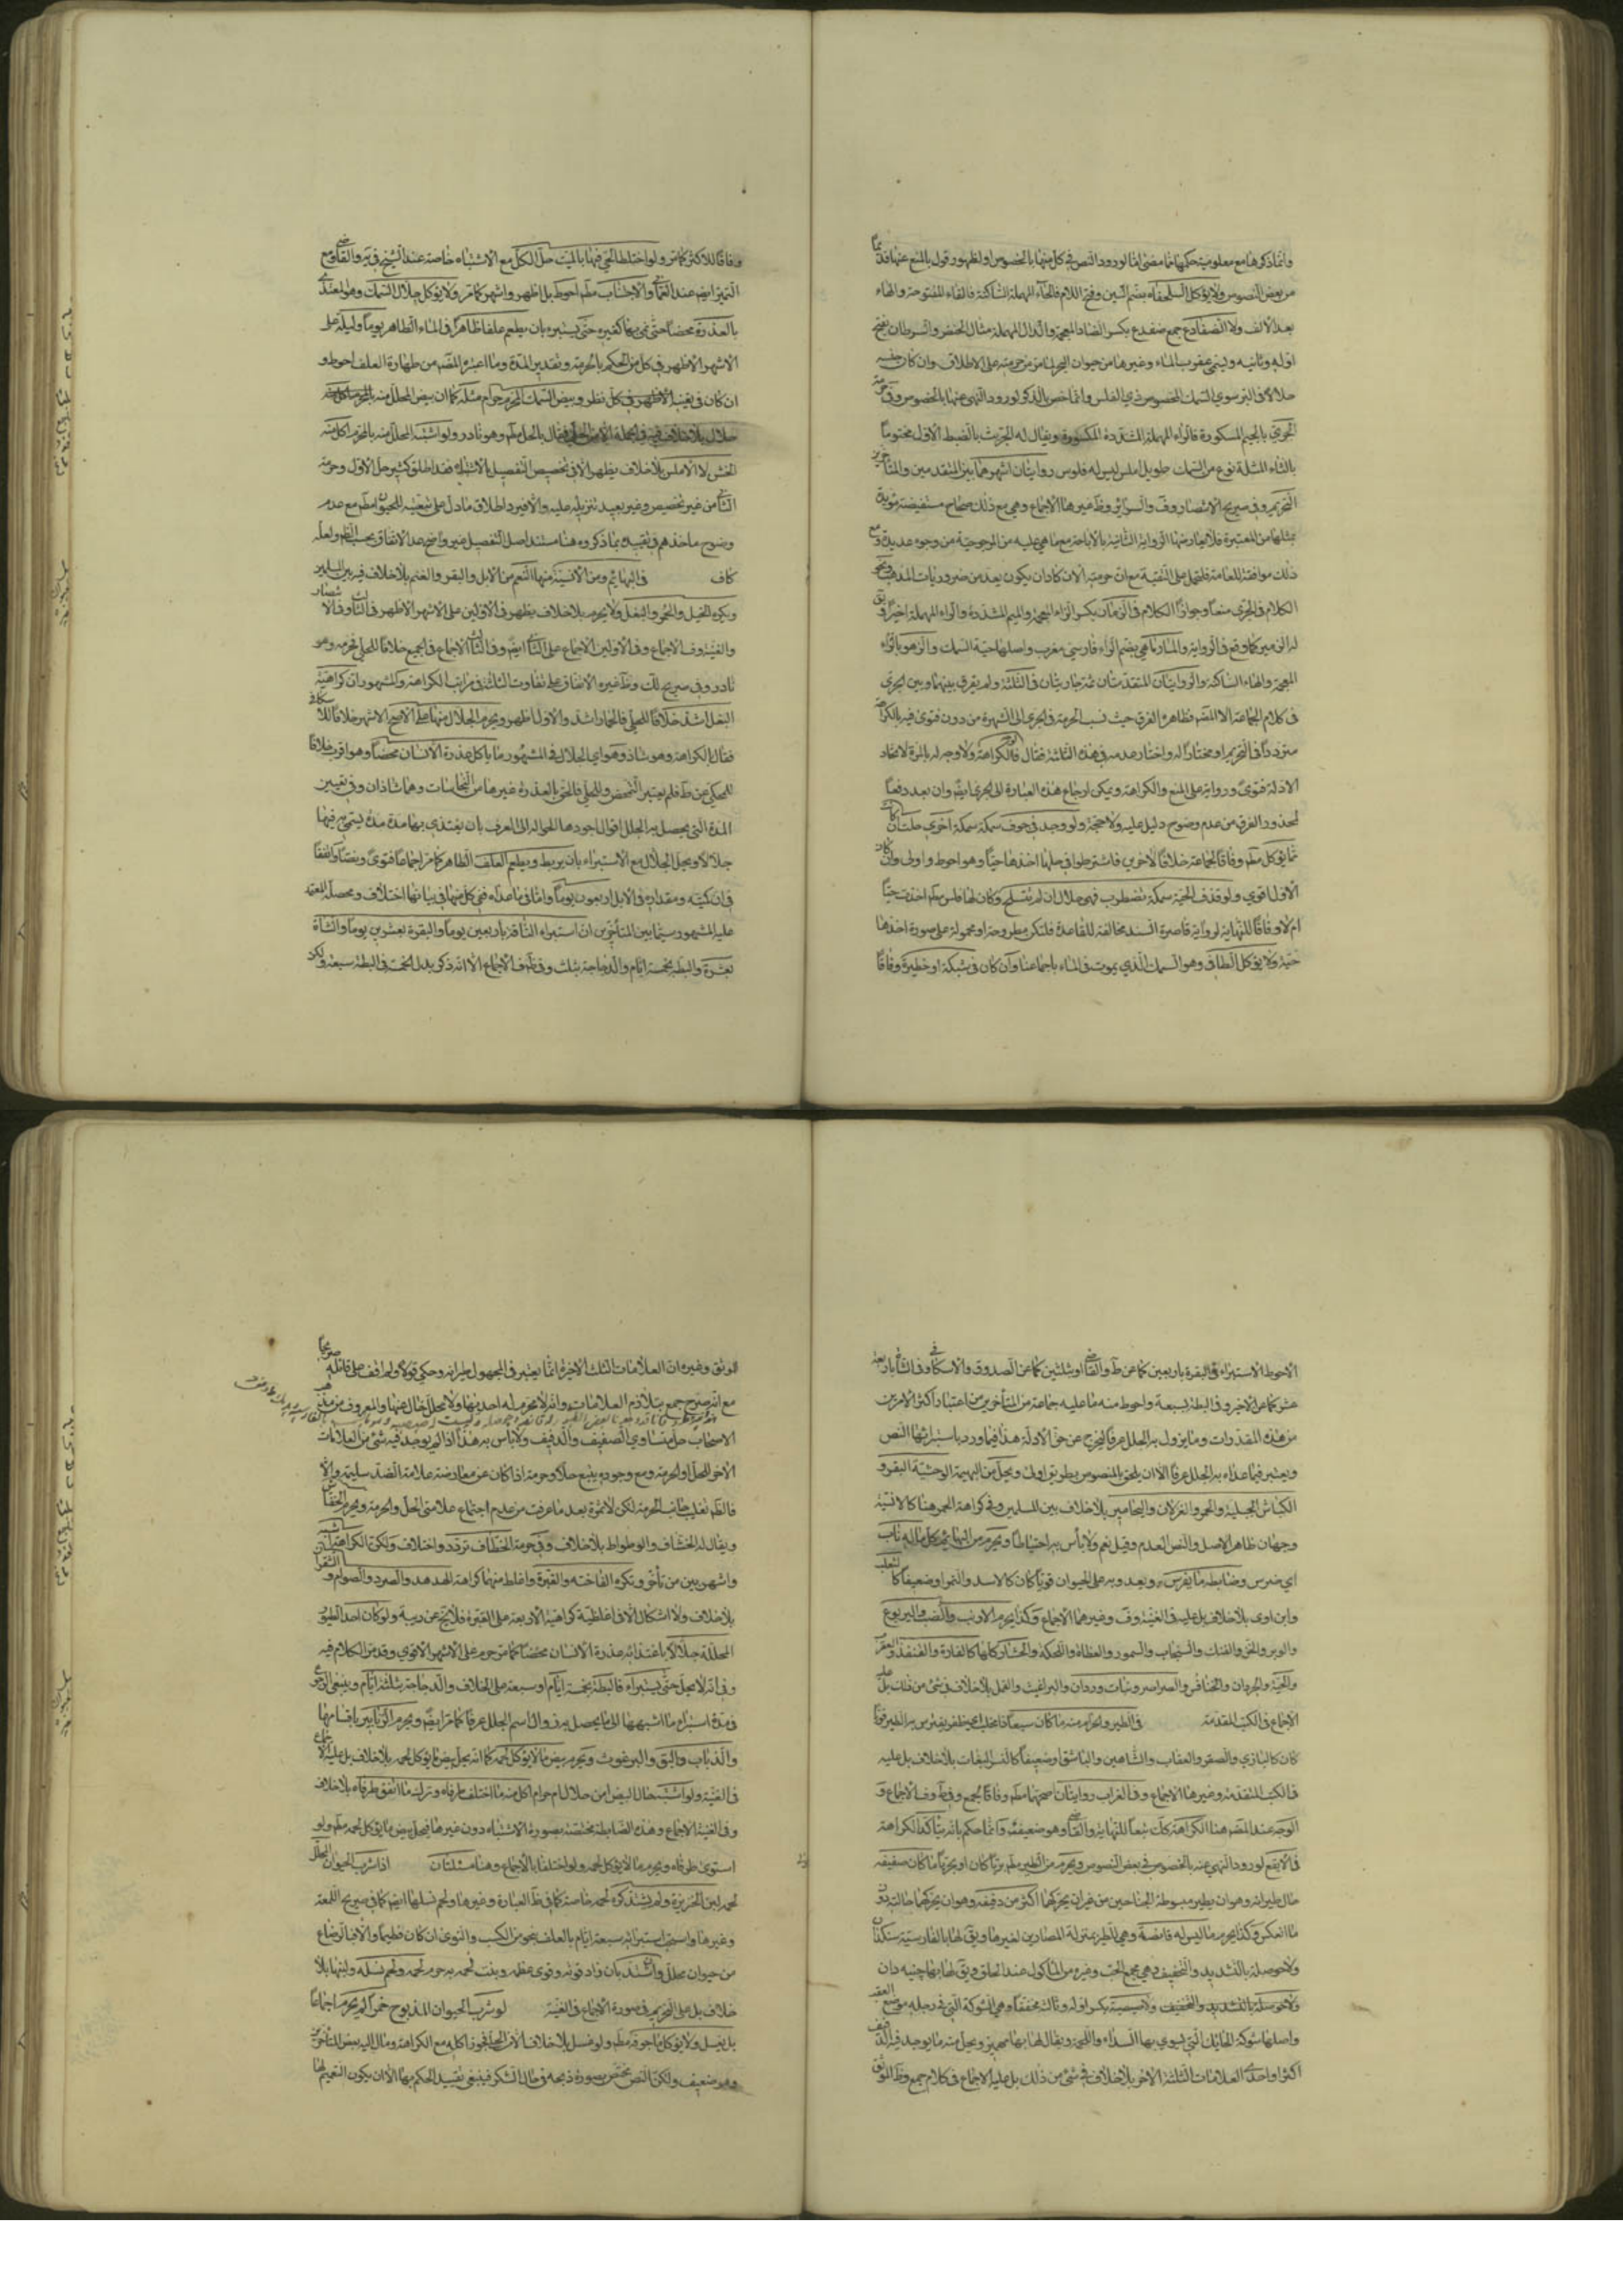 وانما ذكرها مع معلومية حكمها مما مضى اما لورود النص في كل منهما بالخصوص او لظهور قول بالمنع عنها قديما
من بعض النصوص ولا يؤكل السلحفاة بضم السين وفتح اللام فالحاء المهملة الساكنة فالفاء المفتوحة والهاء
بعد الالف ولا الضفادع جمع ضفدع بكسر الضاد المعجمة والدال المهملة مثال الخنصر والسرطان بفتح
اوله وثانيه ويسمى عقرب الماء وغيرها من حيوان البحر لما مر من حرمته على الاطلاق وان كان جنسه
حلالا في البر سوى السمك المخصوص ذي الفلس وانما خص بالذكر لورود النهي عنها بالخصوص وفي حرمة
الجري بالجيم المكسورة فالراء المهملة المشددة المكسورة ويقال له الجريث بالضبط الاول مختوما
بالثاء المثلثة نوع من السمك طويل املس ليس له فلوس روايتان اشهرهما بين المتقدمين والمتأخرين
التحريم وفي صريح الانتصار وف والسرائر وظ غيرها الاجماع وهي مع ذلك صحاح مستفيضة مؤيدة
بمثلها من المعتبرة فلا يعارضها الرواية الثانية بالاباحة مع ما هي عليه من المرجوحية من وجوه عديدة ومع
ذلك موافقة للعامة فلتحمل على التقية مع ان حرمته الان كاد ان يكون يعد من ضروريات المذهب ونحو
الكلام في الجري منعا وجوازا الكلام في الزمار بكسر الزاء المعجمة والميم المشددة والراء المهملة اخيرا ويق
له الزمير كما وقع في الرواية والمارماهي بضم الراء فارسي معرب واصلها حية السمك والزهو بالزاء
المعجمة والهاء الساكنة والروايتان المتقدمتان ثمة جاريتان في الثلثة ولم يفرق بينها وبين الجري
في كلام الجماعة الا المض فظاهره الفرق حيث نسب الحرمة في الجري الى الشهرة من دون فتوى فيه بالكراهة
مترددا في التحريم او مختارا له واختار عدمه في هذه الثلثة فقال فالوجه الكراهة ولا وجه له بالمرة لاتحاد
الادلة فتوى ورواية على المنع والكراهة ويمكن ارجاع هذه العبارة الى الجري ايض وان بعد دفعا
لمحذور الفرق من عدم وضوح دليل عليه ولا حجة ولو وجد في جوف سمكة سمكة اخرى حلت ان كانت
مما يؤكل مط وفاقا لجماعة خلافا لاخرين فاشترطوا في حلها اخذها حيا وهو احوط واولى وان كان
الاول اقوى ولو قذف الحية سمكة تضطرب فهي حلال ان لم تنسلخ وكان لها فلس مط اخذت حيا
ام لا وفاقا للنهاية لرواية قاصرة السند مخالفة للقاعدة فلتكن مطروحة او محمولة على صورة اخذها
حية ولا يؤكل الطافي وهو السمك الذي يموت في الماء باجماعنا وان كان في شبكة او حظيرة وفاقا
وفاقا للاكثر كما مر ولو اختلط الحي فيها بالميت حل الكل مع الاشتباه خاصة عند الشيخ في ية والقاضي مع
التميز ايض عند العماني والاجتناب مط احوط بل اظهر واشهر كما مر ولا يؤكل جلال السمك وهو المغتذي
بالعذرة محضا حتى نمى بها كغيره حتى يستبرء بان يطعم علفا طاهرا في الماء الطاهر يوما وليلة على
الاشهر الاظهر في كل من الحكم بالحرمة وتقدير المدة وما اعتبره المض من طهارة العلف احوط و
ان كان في تعينه نظر وبيض السمك المحرم حرام مثله كما ان بيض المحلل منه
حلال بلا خلاف فيه في الجملة الا من الحلي فقال بالحل مط وهو نادر ولو اشتبه المحلل منه بالمحرم اكل منه
الخشن لا الاملس بلا خلاف يظهر الا في تخصيص التفصيل بالاشتباه فقد اطلق كثير حل الاول وحرمة
الثاني من غير تخصيص وغير بعيد تنزيله عليه والا فيرد اطلاق ما دل على تبعيته للحيوان مط مع عدم
وضوح ماخذهم في تقييده بما ذكروه هنا مستند اصل التفصيل غير واضح عدا الاتفاق بحسب الظ ولعله
كاف في البهائم ومن الانسية منها النعم من الابل والبقر والغنم بلا خلاف فيه بين المسلمين
ويكره الخيل والحمر والبغل ولا يحرم بلا خلاف يظهر في الاولين على الاشهر الاظهر في الثالث وفي الانتصار
والغنية وف الاجماع وفي الاولين الاجماع على الثاني ايض وفي الثالث الاجماع في الجميع خلافا للحلبي فحرمه وهو
نادر وفي صريح لك وظ غيره الاتفاق على تفاوت الثلثة في مراتب الكراهة والمشهور ان كراهية
البغل اشد خلافا للحلي فالحمار اشد والاول اظهر ويحرم الجلال منها على الاصح الاشهر خلافا للاسكافي
فقال بالكراهة وهو شاذ وهو اي الجلال في المشهور ما ياكل عذرة الانسان محضا وهو اقرب خلافا
للمحكي عن ط فلم يعتبر التمحض وللحلبي فالحق بالعذرة غيرها من النجاسات وهما شاذان وفي تعيين
المدة التي يحصل بها الجلل اقوال اجودها الحوالة الى العرف بان يغتذي بها مدة مدة يسمى فيها
جلالا ويحل الجلال مع الاستبراء بان يربط ويطعم العلف الطاهر كما مر اجماعا فتوى ونصا واتفقا
في ان كميته ومقداره في الابل اربعون يوما واما في ما عداه ففي كل منها في بيانها اختلاف ومحصله المعتمد
عليه المشهور سيما بين المتأخرين ان استبراء الناقة باربعين يوما والبقرة بعشرين يوما والشاة
بعشرة والبطة بخمسة ايام والدجاجة بثلث وفي ف الاجماع الا انه ذكر بدل الخمسة في البطة سبعة ولكن
الاحوط الاستبراء في البقرة باربعين كما عن ط والقاضي او بثلثين كما عن الصدوق والاسكافي وفي الشاة باربعة
عشر كما عن الاخير وفي البطة بسبعة واحوط منه ما عليه جماعة من المتأخرين من اعتبار اكثر الامرين
من هذه المقدرات وما يزول به الجلل عرفا ليخرج عن حق الادلة هذا فيما ورد باستبرائها النص
ويعتبر فيما عداه به الجلل عرفا الا ان يلحق بالمنصوص بطريق اولى ويحل من البهيمة الوحشية البقر و
الكباش الجبلية والحمر والغزلان واليحامير بلا خلاف بين المسلمين وفي كراهة الحمر هنا كالانسية
وجهان ظاهر الاصل والنص العدم وقيل نعم ولا بأس به احتياطا ويحرم من البهائم كل ما له ناب
اي ضرس وضابطه ما يفترس به ويعدو به على الحيوان قويا كان كالاسد والنمر او ضعيفا كالثعلب
وابن اوى بلا خلاف بل عليه في الغنية وف وغيرهما الاجماع وكذا يحرم الارنب والضب واليربوع
والوبر والخز والفنك والسنجاب والسمور والعظاة واللحكة والحشار كلها كالفارة والقنفذ والعقرب
والحية والجرذان والخنافس والصراصر وبنات وردان والبراغيث والقمل بلا خلاف في شيء من ذلك بل عليه
الاجماع في الكتب المتقدمة في الطير والحرام منه ما كان سبعا ذا مخلب اي ظفر يفترس به الطير قويا
كان كالبازي والصقر والعقاب والشاهين والباشق او ضعيفا كالنسر البغاث بلا خلاف بل عليه
في الكتب المتقدمة وغيرها الاجماع وفي الغراب روايتان اصحهما مط وفاقا لجمع وفي ط وف الاجماع و
الوجه عند المض هنا الكراهة كك تبعا للنهاية والقاضي وهو ضعيف وانما حكم بانه يتأكد الكراهة
في الابقع لورود النهي عنه بالخصوص في بعض النصوص ويحرم من الطير مط بريا كان او بحريا ما كان صفيفه
حال طيرانه وهو ان يطير مبسوطة الجناحين من غير ان يحركهما اكثر من دفيفه وهو ان يحركهما حالته دون
ما انعكس وكذا يحرم ما ليس له قانصة وهي للطير بمنزلة المصارين لغيرها ويق لها بالفارسية سنكدان
ولا حوصلة بالتشديد والتخفيف وهي مجمع الحب وغيره من المأكول عند الحلق ويق لها بها چينه دان
ولا صيصية بكسر اوله وثالثه مخففا وهي الشوكة التي في رجله موضع العقب
واصلها شوكة الحائك التي يسوي بها السداء واللحمة ويقال لها بها مهميز ويحل منه ما يوجد فيه الدفيف
اكثر او احدى العلامات الثلثة الاخر بلا خلاف في شيء من ذلك بل عليه الاجماع في كلام جمع وظ الموثق
الموثق وغيره ان العلامات الثلث الاخيرة انما يعتبر في المجهول طيرانه وحكي قولا ولم اقف على قائله صريحا
مع انه صرح جمع بتلازم العلامات وانه لا يحرم ما له احديها ولا يحل الخال عنها والمعروف من مذهب
الاصحاب حل متساوي الصفيف والدفيف ولا بأس به هذا اذا لم يوجد فيه شيء من العلامات
الاخر للحل او الحرمة ومع وجوده يتبع حلا وحرمة اذا كان عن معارضة علامة الضد سليمة والا
فالظ تغليب جانب الحرمة لكن لا ثمرة بعد ما عرفت من عدم اجتماع علامتي الحل والحرمة ويحرم الخفاش
ويقال له الخشاف والوطواط بلا خلاف وفي حرمة الخطاف تردد واختلاف ولكن الكراهية اشبه
واشهر بين من تأخر وتكره الفاختة والقبرة واغلظ منهما كراهة الهدهد والصرد والصوام والشقراق
بلا خلاف ولا اشكال الا في اغلظية كراهية الاربعة على القبرة فلا يخ عن ريبة ولو كان احد الطيور
المحللة جلالا كا باغتذائه عذرة الانسان محضا كما مر حرم على الاشهر الاقوى وقد مر الكلام فيه
وفي انه لا يحل حتى يستبرء فالبطة بخمسة ايام او سبعة على الخلاف والدجاجة بثلثة ايام وينبغي الرجوع
في مدة استبراء ما اشبهها الى ما يحصل به زوال اسم الجلل عرفا كما مر ايض ويحرم الزنابير باقسامها
والذباب والبق والبرغوث ويحرم بيض ما لا يؤكل لحمه كما انه يحل بيض ما يؤكل لحمه بلا خلاف بل عليه الاجماع
في الغنية ولو اشتبه حال البيض من حلال ام حرام اكل منه ما اختلف طرفاه وترك ما اتفق طرفاه بلا خلاف
وفي الغنية الاجماع وهذه الضابطة مختصة بصورة الاشتباه دون غيرها فيحل بيض ما يؤكل لحمه مط ولو
استوى طرفاه ويحرم ما لا يؤكل لحمه ولو اختلفا بالاجماع وهنا مسئلتان اذا شرب الحيوان المحلل
لحمه لبن الخنزيرة ولم يشتد كره لحمه خاصة كما في ظ العبارة وغيرها ولحم نسلها ايض كما في صريح اللمعة
وغيرها واستحب استبرائه سبعة ايام بالعلف بنحو من الكسب والنوى ان كان فطيما والا فبالرضاع
من حيوان محلل وان اشتد بان زاد قوته وقوي عظمه ونبت لحمه به حرم لحمه ولحم نسله ولبنها بلا
خلاف بل على التحريم في صورة الاجماع في الغنية لو شرب الحيوان المذبوح خمرا لم يحرم اجماعا
بل يغسل ولا يؤكل ما في جوفه مط ولو غسل بلا خلاف الا من الحلي فجوز اكله مع الكراهة ومال اليه بعض المتأخرين
وهو ضعيف ولكن النص مختص بصورة ذبحه في حال السكر فينبغي تقييد الحكم بها الا ان يكون التعميم لها